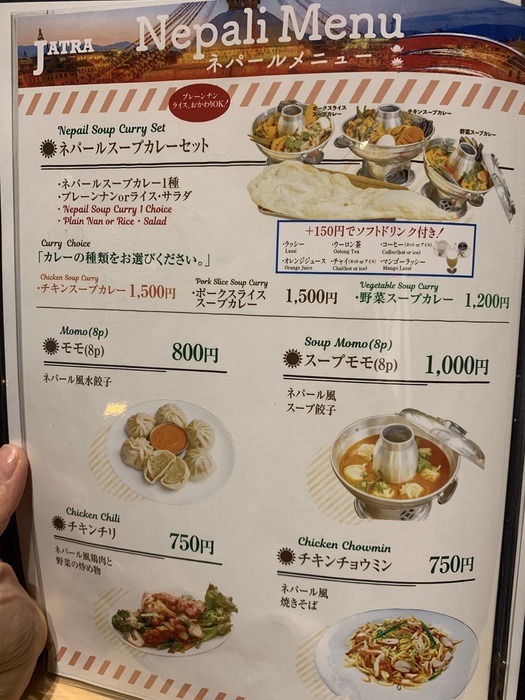 JATRA
Nepali Menu
ネパールメニュー
プレーンナン
ライス、おかわりOK!
ポークスライス
スープカレー
チキンスープカレー
野菜スープカレー
Nepail Soup Curry Set
ネパールスープカレーセット
・ネパールスープカレー1種
・プレーンナンorライス・サラダ
・Nepail Soup Curry 1 Choice
・Plain Nan or Rice・Salad
+150円でソフトドリンク付き!
・ラッシー
Lassi
・ウーロン茶
Oolong Tea
・コーヒー(ホット or アイス)
Coffee(hot or ice)
・オレンジジュース
Orange Juice
・チャイ(ホット or アイス)
Chai(hot or ice)
・マンゴーラッシー
Mango Lassi
Curry Choice
「カレーの種類をお選びください。」
Chicken Soup Curry
・チキンスープカレー 1,500円
Pork Slice Soup Curry
・ポークスライス
スープカレー 1,500円
Vegetable Soup Curry
・野菜スープカレー 1,200円
Momo(8p)
モモ(8p) 800円
ネパール風水餃子
Soup Momo(8p)
スープモモ(8p) 1,000円
ネパール風
スープ餃子
Chicken Chili
チキンチリ 750円
ネパール風鶏肉と
野菜の炒め物
Chicken Chowmin
チキンチョウミン 750円
ネパール風
焼きそば